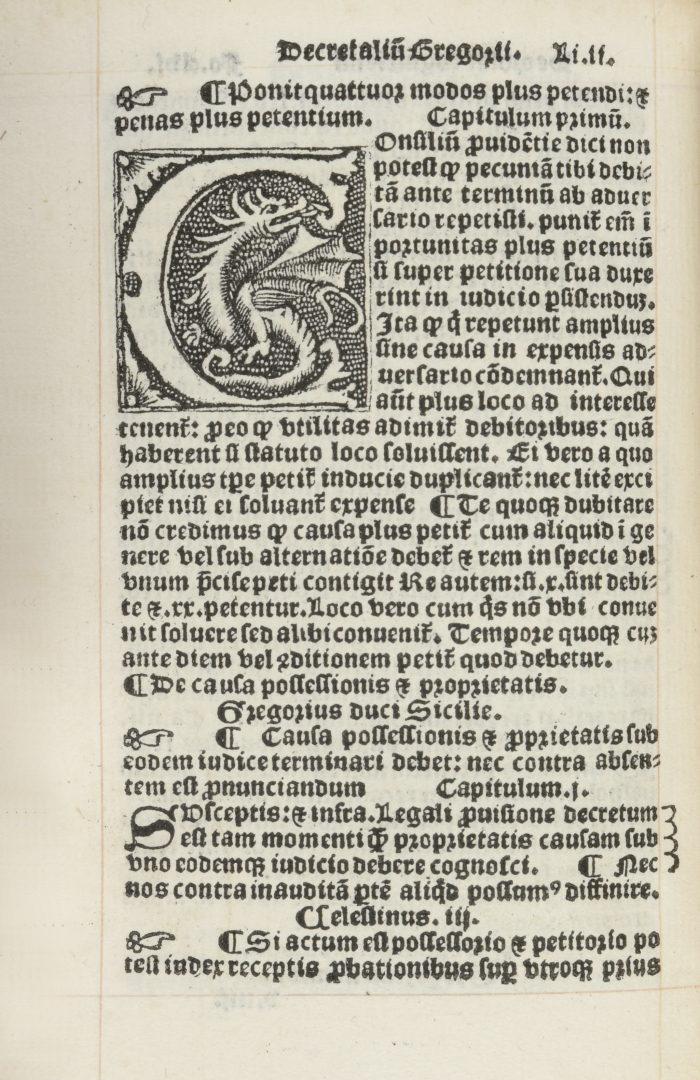 Decretaliū Gregorii. Li.ii.
☞ ¶ Ponit quattuor modos plus petendi: ⁊
penas plus petentium. Capitulum primū.
COnsiliū ꝓuidētie dici non
potest ꝙ pecuniā tibi debi⸗
tā ante terminū ab aduer
sario repetisti. punit᷑ em̄ ī
portunitas plus petentiū
si super petitione sua duxe
rint in iudicio ꝑsistenduꝫ.
Ita ꝙ q̄ repetunt amplius
sine causa in expensis ad⸗
uersario cōdemnant᷑. Qui
aūt plus loco ad interesse
tenent᷑: ꝓeo ꝙ vtilitas adimit᷑ debitoribus: quā
haberent si statuto loco soluissent. Ei vero a quo
amplius tꝑe petit᷑ inducie duplicant᷑: nec litē exci
piet nisi ei soluant᷑ expense ¶ Te quoqꝫ dubitare
nō credimus ꝙ causa plus petit᷑ cum aliquid ī ge
nere vel sub alternatiōe debet᷑ ⁊ rem in specie vel
vnum p̄cise peti contigit Re autem: si .x. sint debi⸗
te ⁊ .xx. petentur. Loco vero cum q̄s nō vbi conue
nit soluere sed alibi conuenit᷑. Tempore quoqꝫ cuꝫ
ante diem vel ꝯditionem petit᷑ quod debetur.
¶ De causa possessionis ⁊ proprietatis.
Gregorius duci Sicilie.
☞ ¶ Causa possessionis ⁊ ꝓprietatis sub
eodem iudice terminari debet: nec contra absen⸗
tem est ꝓnunciandum Capitulum .j.
SVsceptis: ⁊ infra. Legali ꝓuisione decretum
est tam momenti ꝙ̄ proprietatis causam sub
vno eodemqꝫ iudicio debere cognosci. ¶ Nec
nos contra inauditā ꝑtē aliqd̄ possumꝰ diffinire.
Celestinus. iij.
☞ ¶ Si actum est possessorio ⁊ petitorio po
test iudex receptis ꝓbationibus suꝑ vtroqꝫ prius